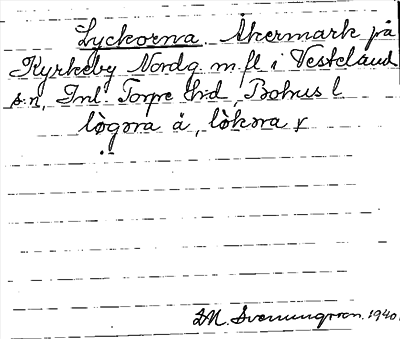 Lyckorna. Åkermark på
Kyrkeby Nordg. m fl i Vesteland
s:n, Inl. Torpe hd, Bohus l
lògɷra å, lòkɷra r
S.M. Svenungsson. 1940.